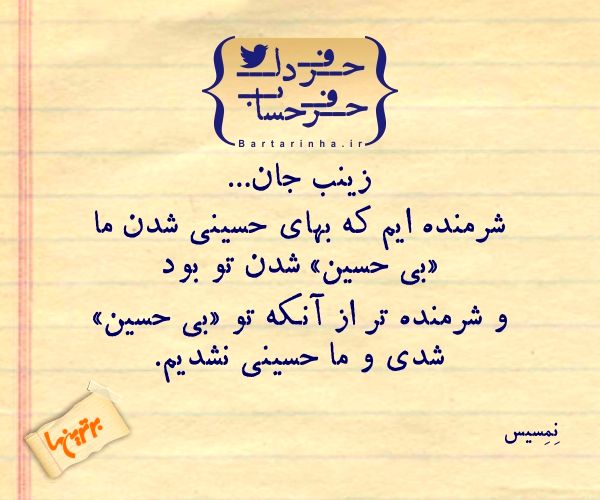 حرف دل
حرف حساب
Bartarinha.ir
زینب جان...
شرمنده ایم که بهای حسینی شدن ما
«بی حسین» شدن تو بود
و شرمنده تر از آنکه تو «بی حسین»
شدی و ما حسینی نشدیم.
برترین‌ها
نِمِسیس